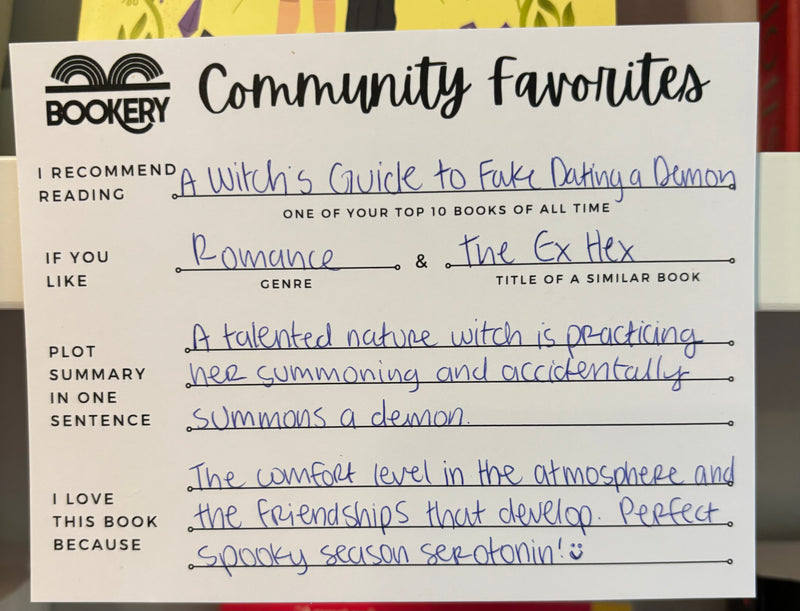 BOOKERY
Community Favorites
I RECOMMEND
READING
A Witch's Guide to Fake Dating a Demon
ONE OF YOUR TOP 10 BOOKS OF ALL TIME
IF YOU
LIKE
Romance & The Ex Hex
GENRE
TITLE OF A SIMILAR BOOK
PLOT
SUMMARY
IN ONE
SENTENCE
A talented nature witch is practicing
her summoning and accidentally
summons a demon.
I LOVE
THIS BOOK
BECAUSE
The comfort level in the atmosphere and
the friendships that develop. Perfect
spooky season serotonin!